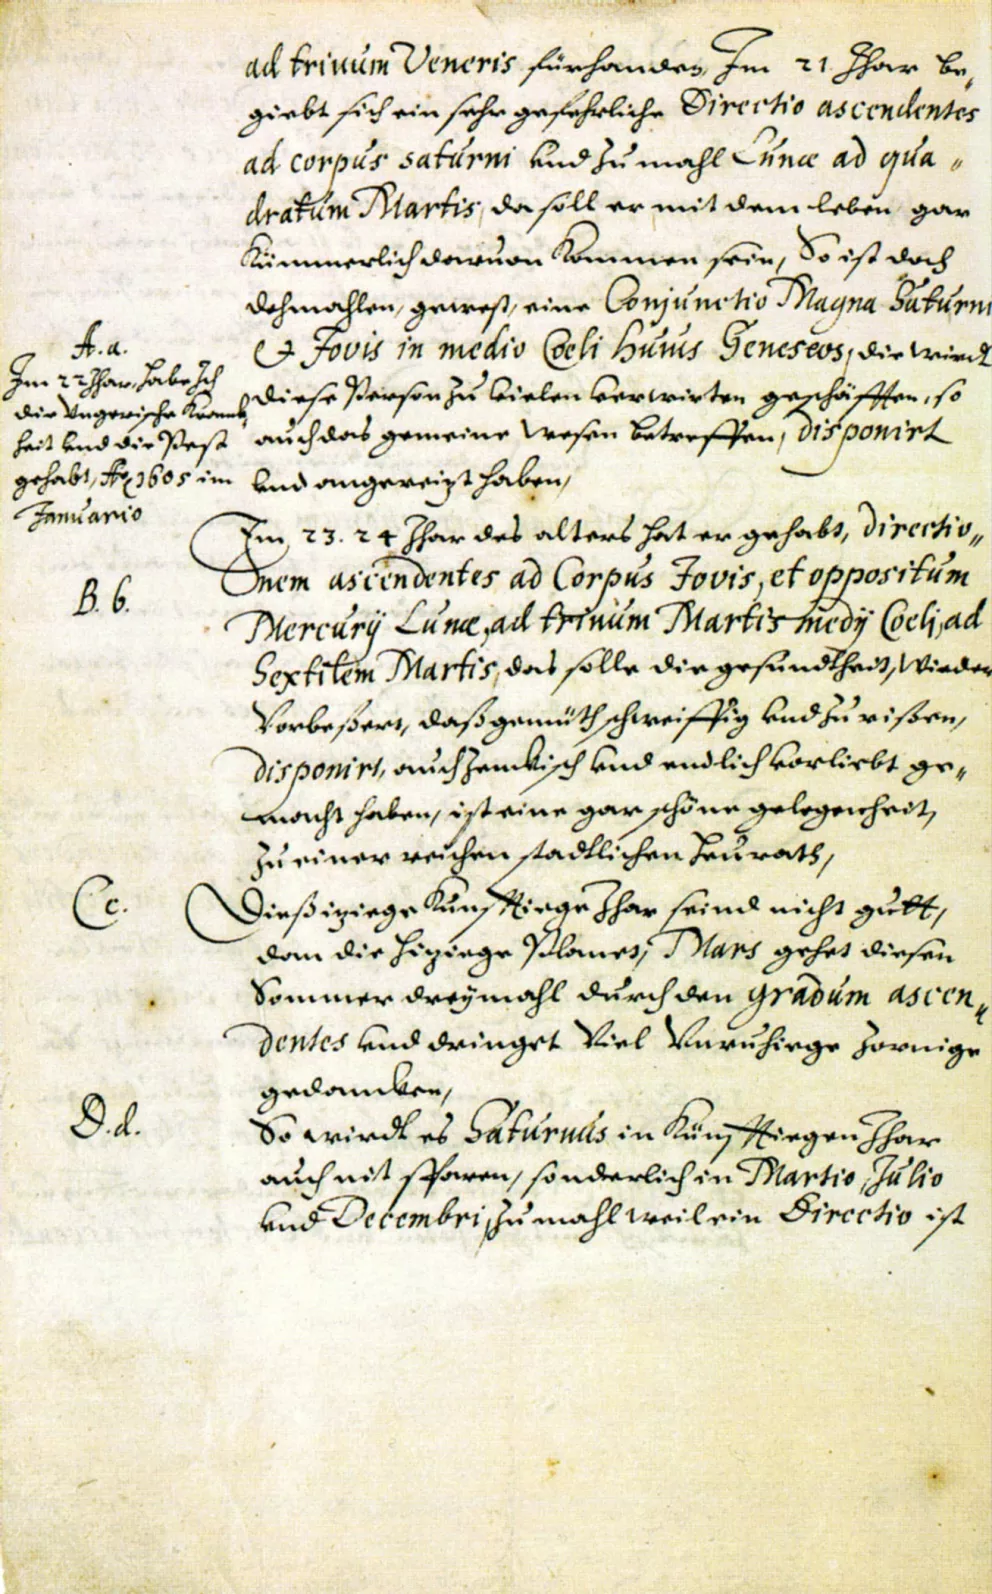 ad trinum Veneris fürhanden, Im 21 Jhar be„
giebt sich ein sehr gefehrliche Directio ascendentes
ad corpus saturni vnd zu mahl Lunæ ad qua„
dratum Martis, da soll er mit dem leben gar
kümmerlich daruon kommen sein, So ist doch
dehmahlen, gewest, eine Conjunctio Magna Saturni
et Jovis in medio Coeli huius Geneseos, die wirdt
diese Person zu vielen verwirten geschäfften, so
auch das gemeine wesen betreffen, disponirt
vnd angereizt haben,
A. a.
Im 22 Jhar, habe Ich
die Vngerische Kranck„
heit vnd die Pest
gehabt, Ao 1605 im
Januario
Im 23. 24 Jhar des alters hat er gehabt, directio„
nem ascendentes ad Corpus Jovis, et oppositum
B. b.
Mercurÿ Lunæ, ad trinum Martis medÿ Coeli, ad
Sextilem Martis, das solle die gesundtheit, wieder
verbeßert, daß gemüth schweiffig vnd zu rißen,
disponirt, auch zenckisch vnd endlich verliebt ge„
macht haben, ist eine gar schöne gelegenheit,
zu einer reichen stadtlichen heurath,
C c.
Dieß iziege künfftiege Jhar seind nicht gutt,
dan die hiziege Planet, Mars gehet diesen
Sommer dreÿmahl durch den gradum ascen„
dentes vnd bringet Viel Vnruhiege zornige
gedancken,
D. d.
So wirdt es Saturnus in künfftiegen Jhar
auch nit sparen, sonderlich in Martio, Julio
vnd Decembri, zu mahl weil ein Directio ist